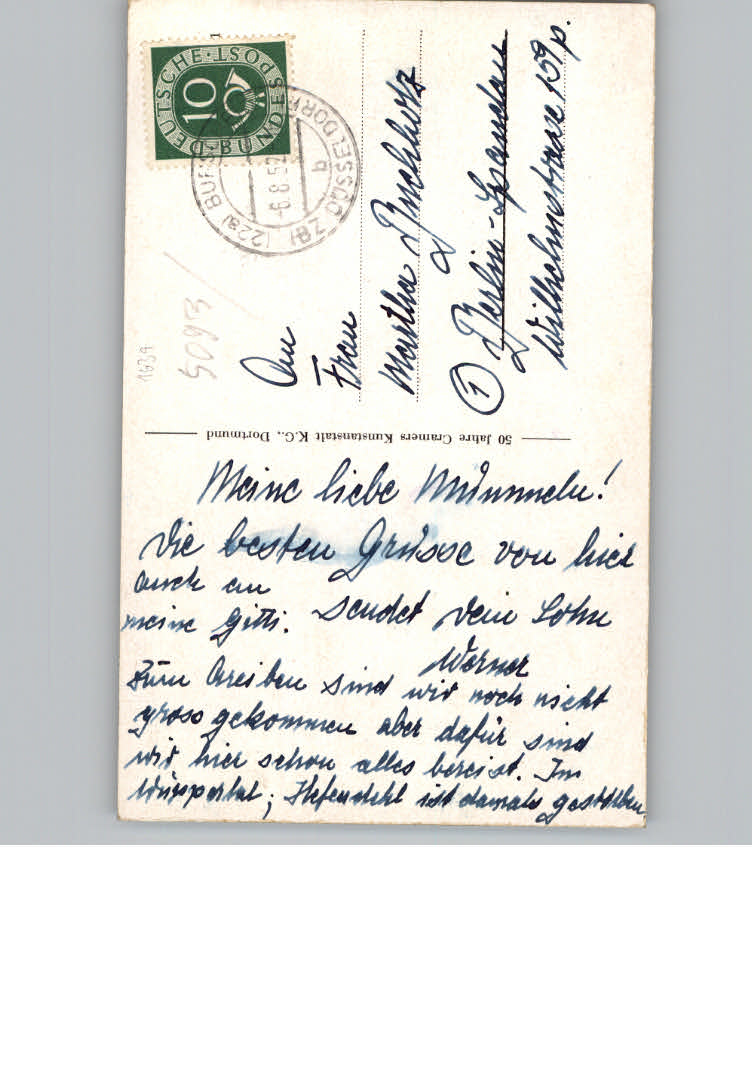 Meine liebe Mümmeln!
Die besten Grüsse von hier
auch an
meine Gitti. sendet Dein Sohn
Werner
Zum Schreiben sind wir noch nicht
gross gekommen aber dafür sind
wir hier schon alles bereist. Im
Wuppertal; Hefendehl ist damals gestorben.
50 Jahre Cramers Kunstanstalt K.G., Dortmund
An
Frau
Martha Buchholz
(1) Berlin-Spandau
Wilhelmstrasse 159 p.
DEUTSCHE·BUNDESPOST
10
(22a) DÜSSELDORF
-6.8.52
b
5093
1639
1